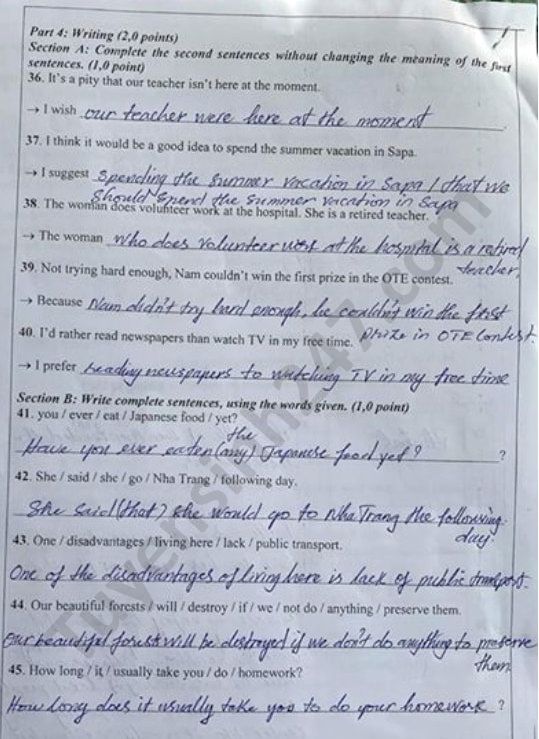 Part 4: Writing (2,0 points)
Section A: Complete the second sentences without changing the meaning of the first
sentences. (1,0 point)
36. It's a pity that our teacher isn't here at the moment.
→ I wish our teacher were here at the moment.
37. I think it would be a good idea to spend the summer vacation in Sapa.
→ I suggest spending the summer vacation in Sapa / that we
should spend the summer vacation in Sapa
38. The woman does volunteer work at the hospital. She is a retired teacher.
→ The woman who does volunteer work at the hospital is a retired
teacher.
39. Not trying hard enough, Nam couldn't win the first prize in the OTE contest.
→ Because Nam didn't try hard enough, he couldn't win the first
prize in OTE contest.
40. I'd rather read newspapers than watch TV in my free time.
→ I prefer reading newspapers to watching TV in my free time
Section B: Write complete sentences, using the words given. (1,0 point)
41. you / ever / eat / Japanese food / yet?
the
Have you ever eaten (any) Japanese food yet? ?
42. She / said / she / go / Nha Trang / following day.
She said (that) she would go to Nha Trang the following
day.
43. One / disadvantages / living here / lack / public transport.
One of the disadvantages of living here is lack of public transport.
44. Our beautiful forests / will / destroy / if / we / not do / anything / preserve them.
Our beautiful forests will be destroyed if we don't do anything to preserve
them
45. How long / it / usually take you / do / homework?
How long does it usually take you to do your homework ?
Tuyensinh247.com